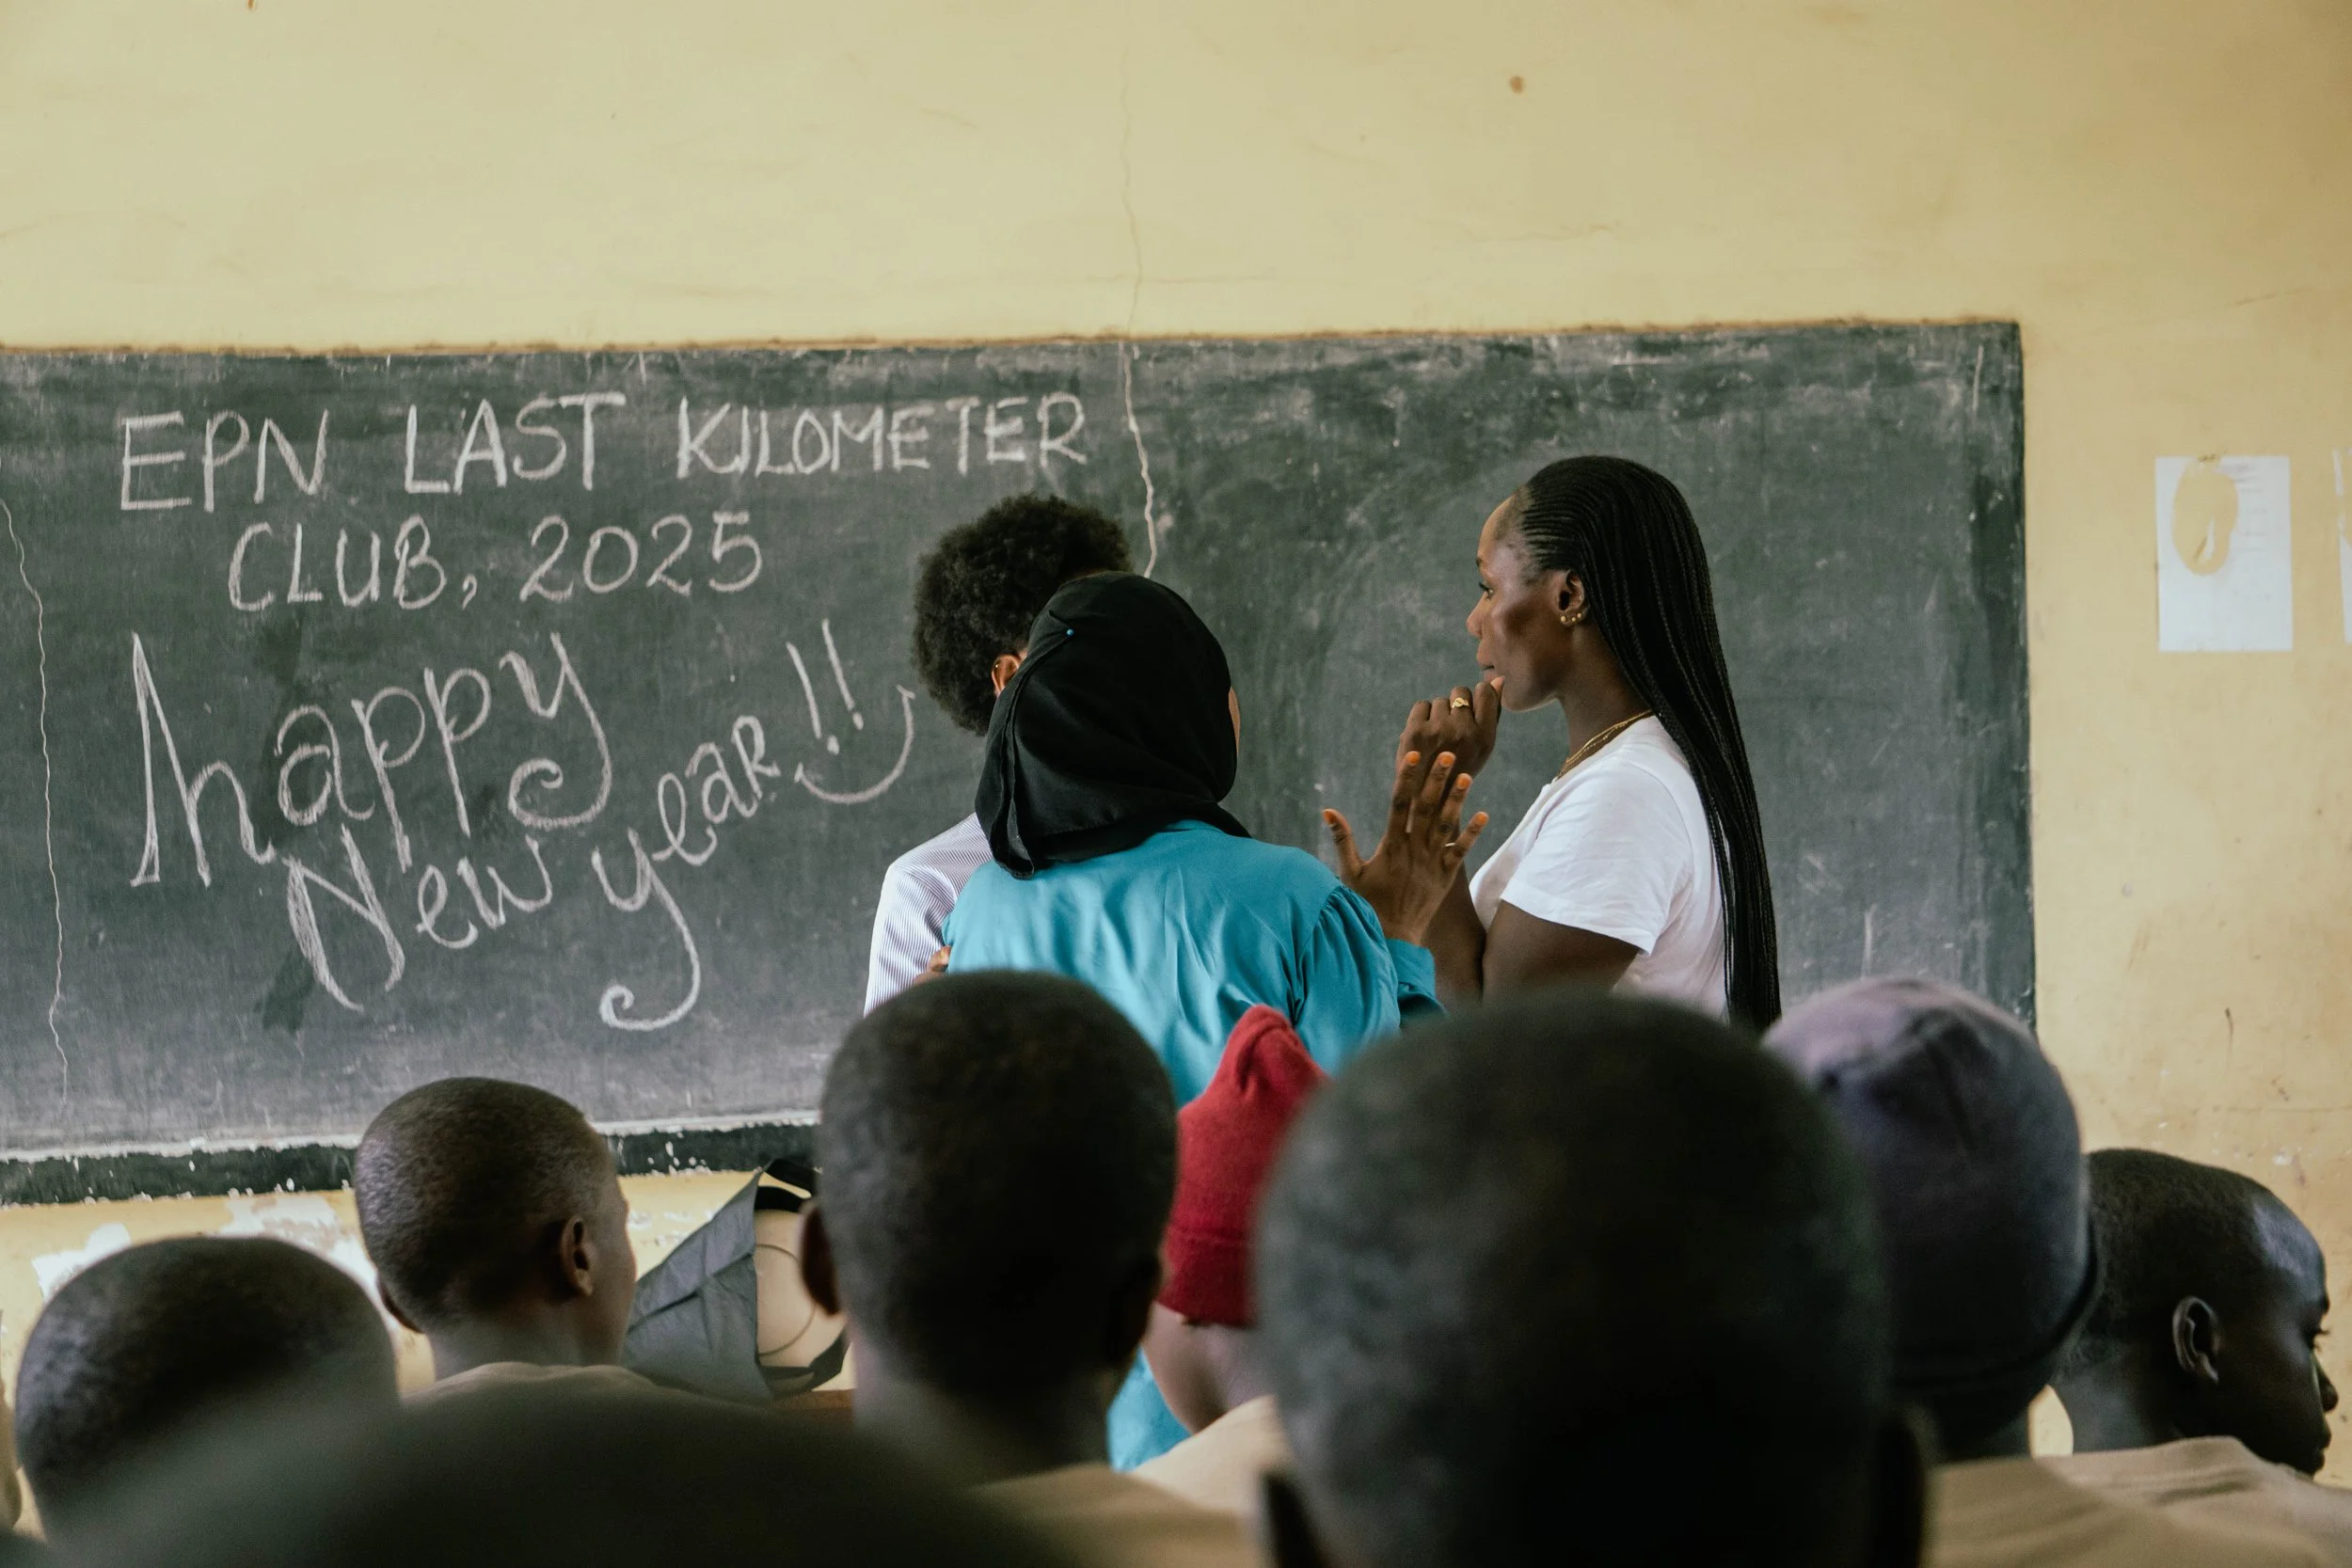 EPN LAST KILOMETER
CLUB, 2025
happy
New year!!